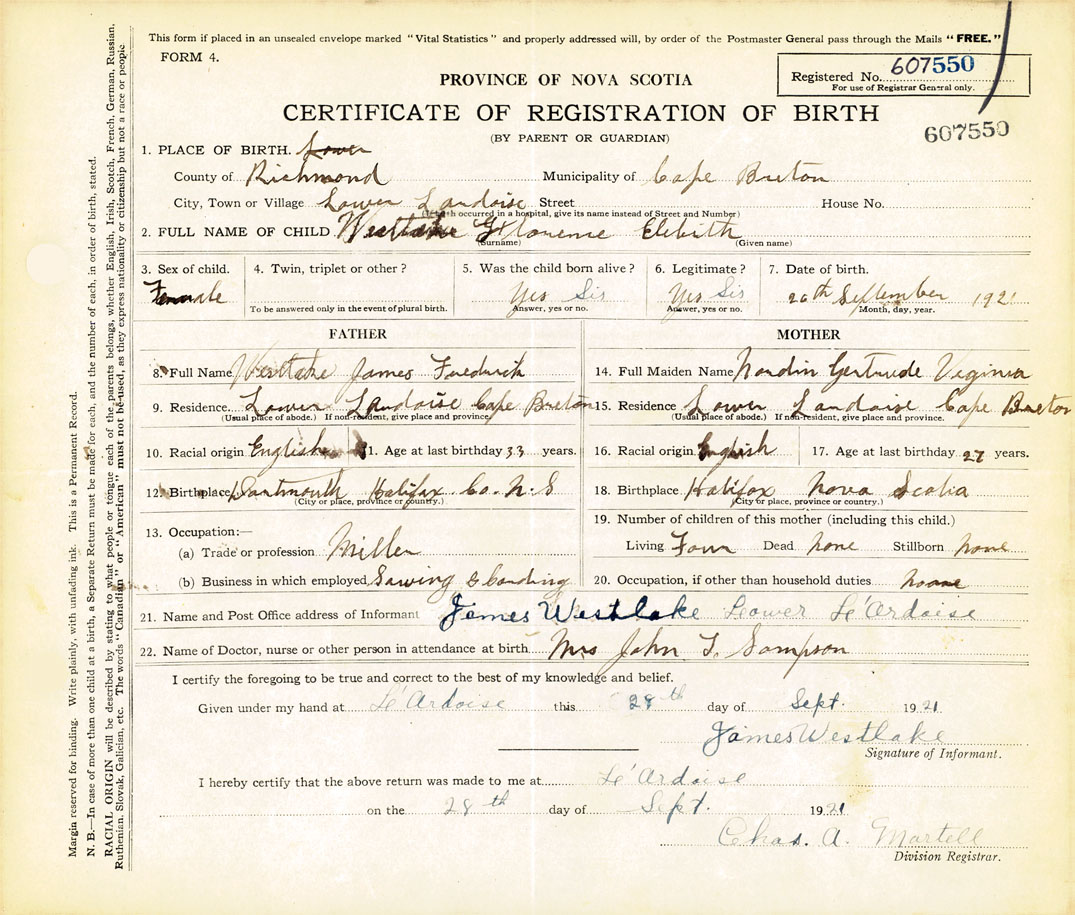 This form if placed in an unsealed envelope marked "Vital Statistics" and properly addressed will, by order of the Postmaster General pass through the Mails "FREE."
FORM 4.
Registered No. 607550
For use of Registrar General only.
PROVINCE OF NOVA SCOTIA
CERTIFICATE OF REGISTRATION OF BIRTH
607550
(BY PARENT OR GUARDIAN)
1. PLACE OF BIRTH. Lower
County of Richmond Municipality of Cape Breton
City, Town or Village Lower Lardoise Street House No.
(If birth occurred in a hospital, give its name instead of Street and Number)
2. FULL NAME OF CHILD Westlake Florence
(Surname) (Given name)
3. Sex of child. 4. Twin, triplet or other? 5. Was the child born alive? 6. Legitimate? 7. Date of birth.
Female Yes Sis Yes Sis 20th September 1921
To be answered only in the event of plural birth. Answer, yes or no. Answer, yes or no. Month, day, year.
FATHER MOTHER
8. Full Name Westlake James Fredrick 14. Full Maiden Name Gertrude Virginia
9. Residence Lower Lardoise Cape Breton 15. Residence Lower Lardoise Cape Breton
(Usual place of abode.) If non-resident, give place and province. (Usual place of abode.) If non-resident, give place and province.
10. Racial origin English 11. Age at last birthday 33 years. 16. Racial origin English 17. Age at last birthday 27 years.
12. Birthplace Dartmouth Halifax Co. N. S 18. Birthplace Halifax Nova Scotia
(City or place, province or country.) (City or place, province or country.)
13. Occupation:— 19. Number of children of this mother (including this child.)
(a) Trade or profession Miller Living Four Dead None Stillborn None
(b) Business in which employed Sawing & 20. Occupation, if other than household duties
21. Name and Post Office address of Informant James Westlake Lower L'Ardoise
22. Name of Doctor, nurse or other person in attendance at birth Mrs John T. Sampson
I certify the foregoing to be true and correct to the best of my knowledge and belief.
Given under my hand at L'Ardoise this 28th day of Sept. 1921
James Westlake
Signature of Informant.
I hereby certify that the above return was made to me at L'Ardoise
on the 28th day of Sept. 1921
Chas. A. Martell
Division Registrar.
Margin reserved for binding. Write plainly, with unfading ink. This is a Permanent Record.
N. B.—In case of more than one child at a birth, a Separate Return must be made for each, and the number of each, in order of birth, stated.
RACIAL ORIGIN will be described by stating to what people or tongue each of the parents belongs, whether English, Irish, Scotch, French, German, Russian,
Ruthenian, Slovak, Galician, etc. The words "Canadian" or "American" must not be used, as they express nationality or citizenship but not a race or people